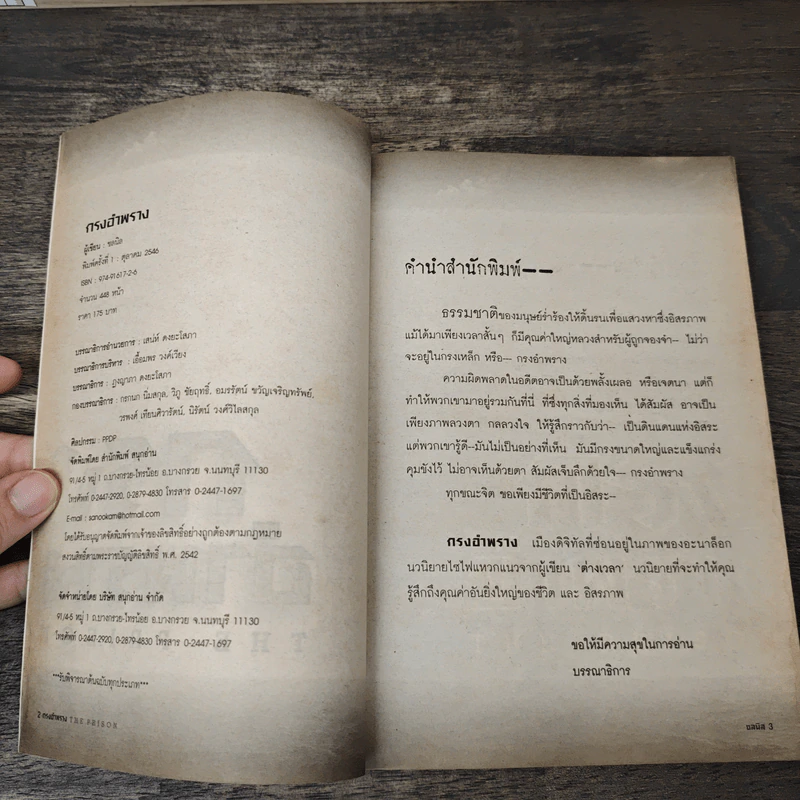 กรงอำพราง
ผู้เขียน : ชลนิล
พิมพ์ครั้งที่ 1 : ตุลาคม 2546
ISBN : 974-91617-2-6
จำนวน 448 หน้า
ราคา 175 บาท
บรรณาธิการอำนวยการ : เสน่ห์ ดงยะโสภา
บรรณาธิการบริหาร : เอื้อมพร วงค์เวียง
บรรณาธิการ : ภูงญาภา ดงยะโสภา
กองบรรณาธิการ : กรกนก นิ่มสกุล, วิภู ชัยฤทธิ์, อมรรัตน์ ขวัญเจริญทรัพย์,
วรพงศ์ เทียนศิวารัตน์, นิรัตน์ วงศ์วิไลสกุล
ศิลปกรรม : PPDP
จัดพิมพ์โดย สำนักพิมพ์ สนุกอ่าน
91/4-5 หมู่ 1 ถ.บางกรวย-ไทรน้อย อ.บางกรวย จ.นนทบุรี 11130
โทรศัพท์ 0-2447-2920, 0-2879-4830 โทรสาร 0-2447-1697
E-mail : sanookarn@hotmail.com
โดยได้รับอนุญาตจัดพิมพ์จากเจ้าของลิขสิทธิ์อย่างถูกต้องตามกฎหมาย
สงวนสิทธิ์ตามพระราชบัญญัติลิขสิทธิ์ พ.ศ. 2542
จัดจำหน่ายโดย บริษัท สนุกอ่าน จำกัด
91/4-5 หมู่ 1 ถ.บางกรวย-ไทรน้อย อ.บางกรวย จ.นนทบุรี 11130
โทรศัพท์ 0-2447-2920, 0-2879-4830 โทรสาร 0-2447-1697
***รับพิจารณาต้นฉบับทุกประเภท***
2 กรงอำพราง THE PRISON
คำนำสำนักพิมพ์--
ธรรมชาติของมนุษย์ร่ำร้องให้ดิ้นรนเพื่อแสวงหาซึ่งอิสรภาพ
แม้ได้มาเพียงเวลาสั้นๆ ก็มีคุณค่าใหญ่หลวงสำหรับผู้ถูกจองจำ-- ไม่ว่า
จะอยู่ในกรงเหล็ก หรือ-- กรงอำพราง
ความผิดพลาดในอดีตอาจเป็นด้วยพลั้งเผลอ หรือเจตนา แต่ก็
ทำให้พวกเขามาอยู่รวมกันที่นี่ ที่ซึ่งทุกสิ่งที่มองเห็น ได้สัมผัส อาจเป็น
เพียงภาพลวงตา กลลวงใจ ให้รู้สึกราวกับว่า-- เป็นดินแดนแห่งอิสระ
แต่พวกเขารู้ดี--มันไม่เป็นอย่างที่เห็น มันมีกรงขนาดใหญ่และแข็งแกร่ง
คุมขังไว้ ไม่อาจเห็นด้วยตา สัมผัสเจ็บลึกด้วยใจ-- กรงอำพราง
ทุกขณะจิต ขอเพียงมีชีวิตที่เป็นอิสระ--
กรงอำพราง เมืองดิจิทัลที่ซ่อนอยู่ในภาพของอะนาล็อก
นวนิยายไซไฟแหวกแนวจากผู้เขียน 'ต่างเวลา' นวนิยายที่จะทำให้คุณ
รู้สึกถึงคุณค่าอันยิ่งใหญ่ของชีวิต และ อิสรภาพ
ขอให้มีความสุขในการอ่าน
บรรณาธิการ
ชลนิล 3